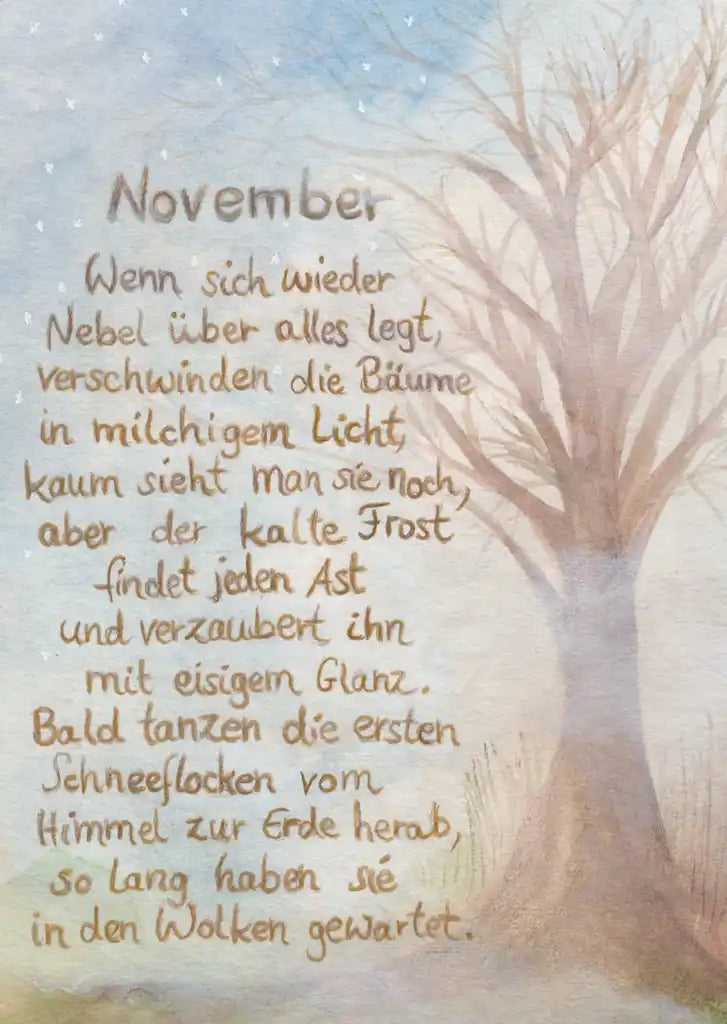 November
Wenn sich wieder
Nebel über alles legt,
verschwinden die Bäume
in milchigem Licht,
kaum sieht man sie noch,
aber der kalte Frost
findet jeden Ast
und verzaubert ihn
mit eisigem Glanz.
Bald tanzen die ersten
Schneeflocken vom
Himmel zur Erde herab,
so lang haben sie
in den Wolken gewartet.